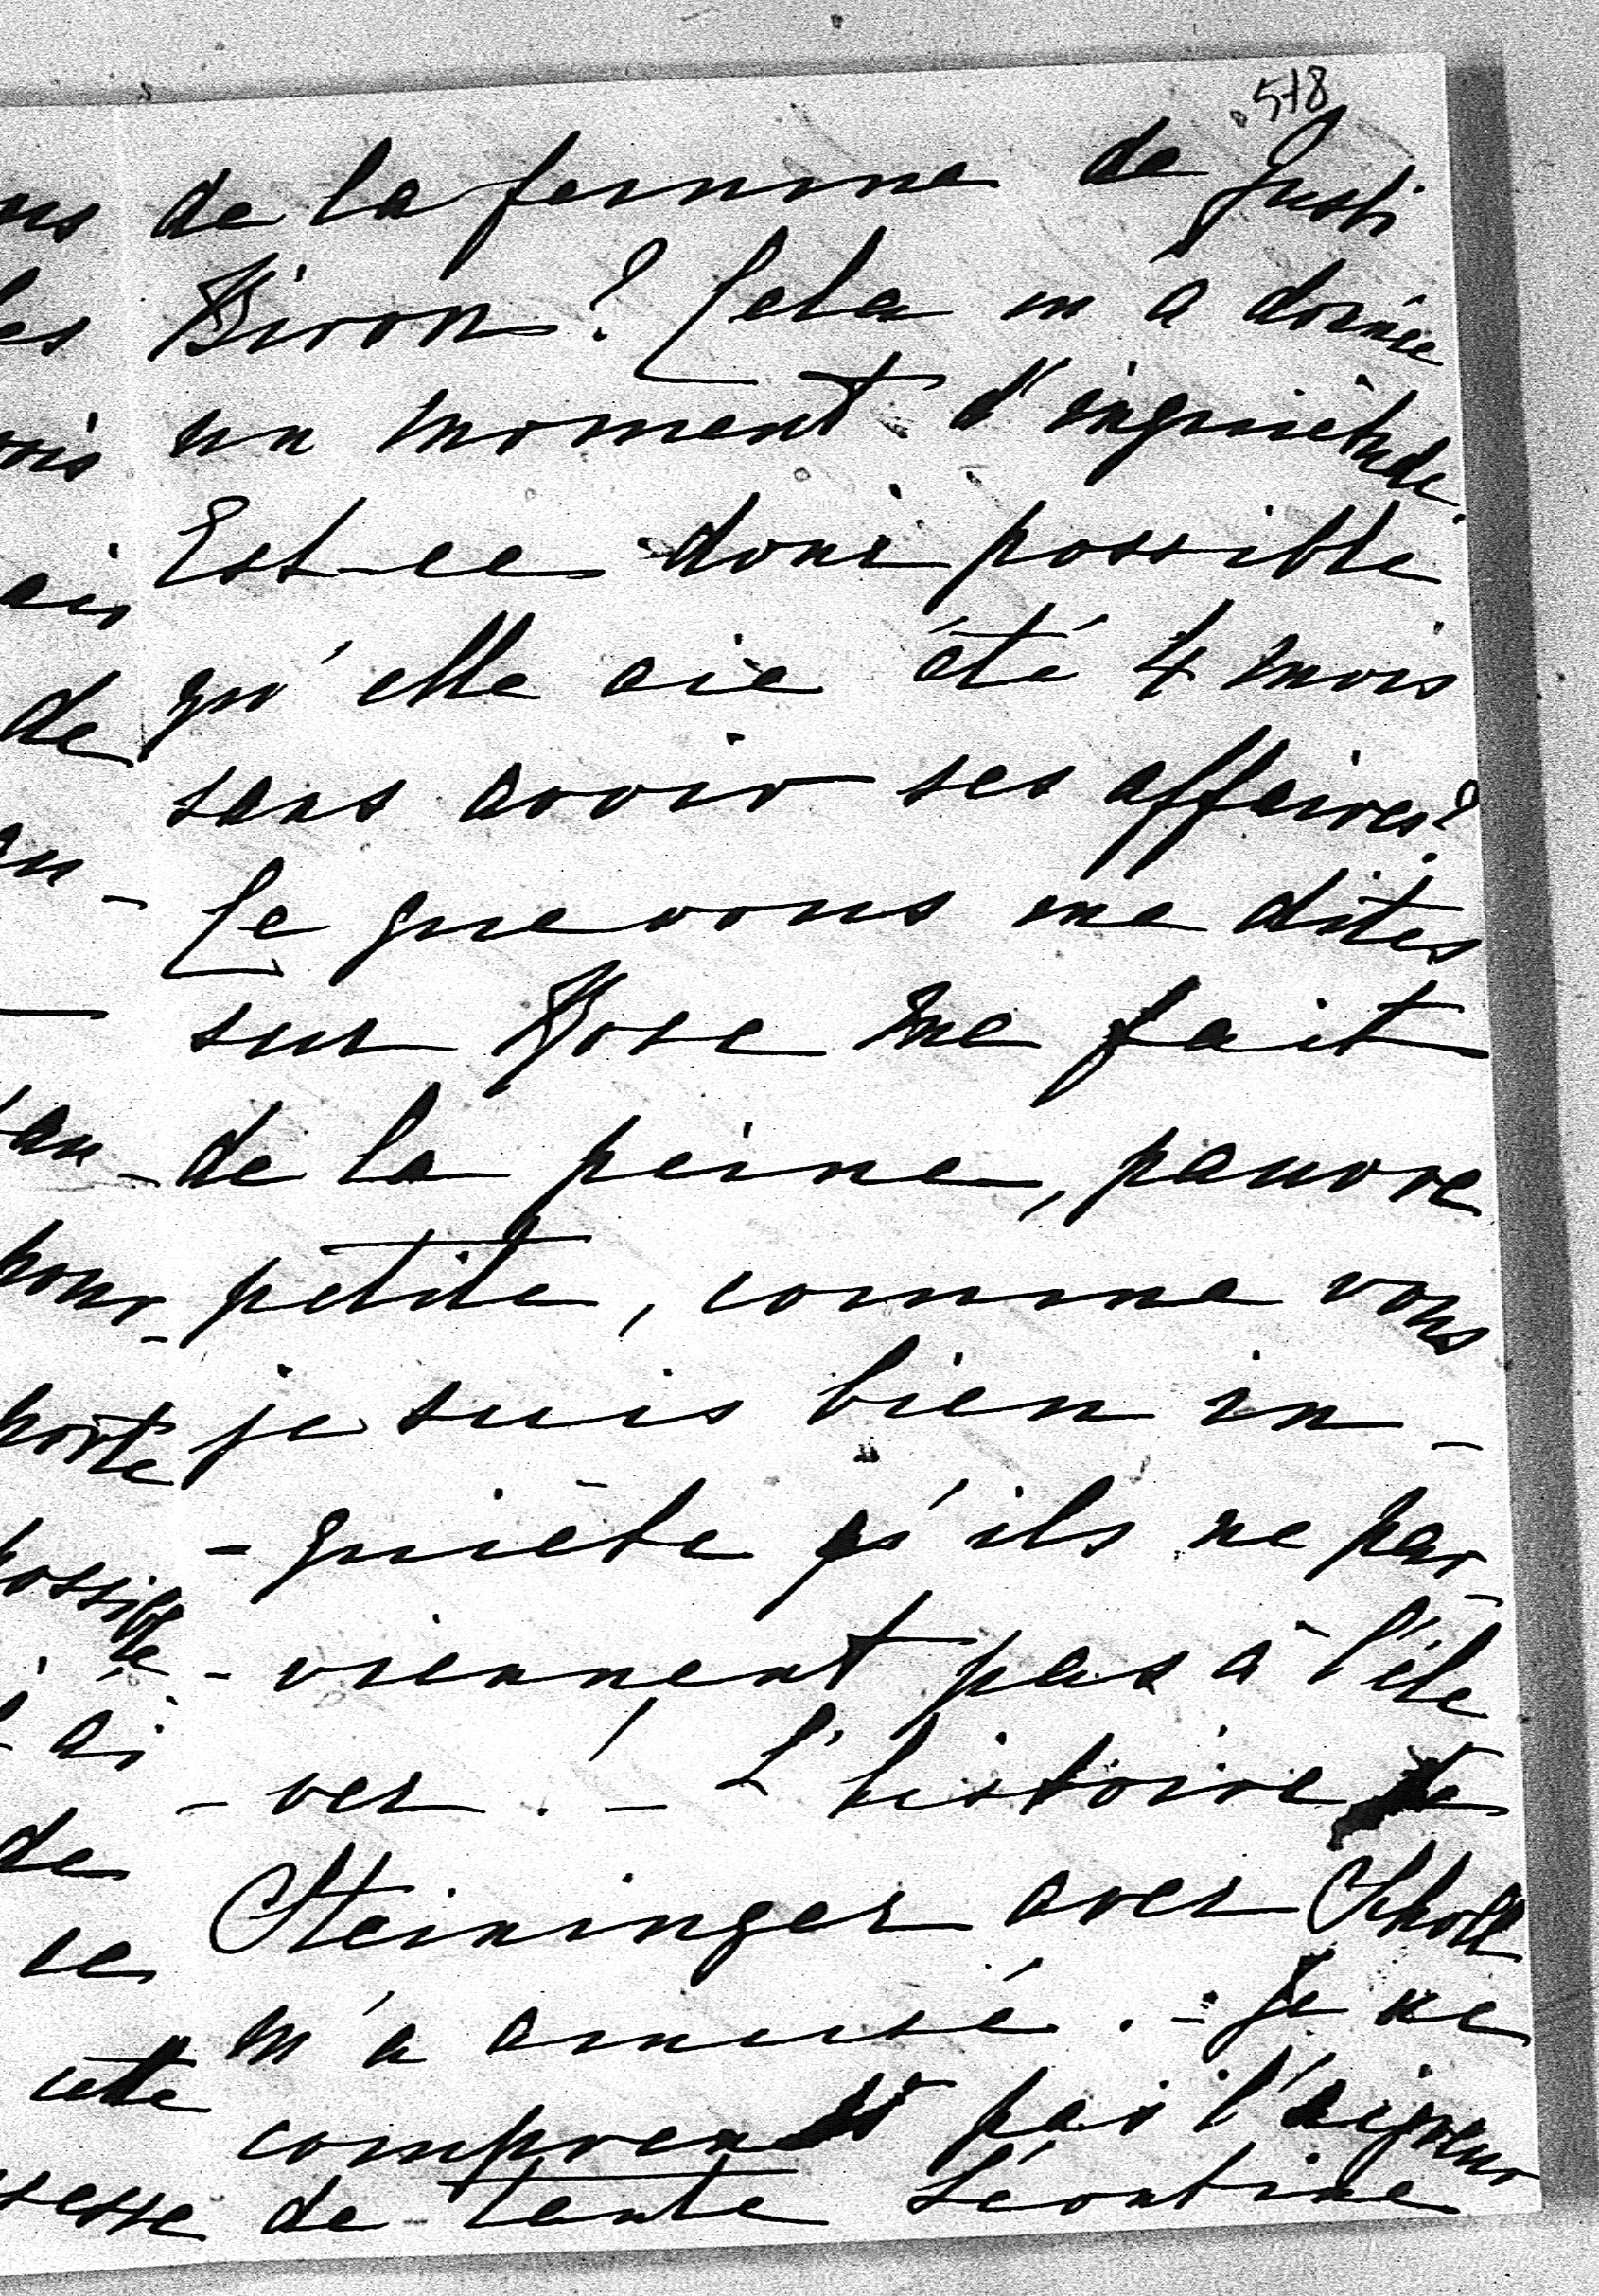 518
de la femme de Gusti
Biron? Cela m'a donnée
un moment d'inquiètude.
Est-ce donc possible
qu'elle aie été 4 mois
sans avoir ses affaires?
Ce que vous me dites
sur Rose me fait
de la peine, pauvre
petite, comme vous
je suis bien in-
-quiète qu'ils ne par-
-viennent pas à l'éle
-ver. ! - L'histoire de
Steininger avec Scholl
m'a amusé. - Je ne
comprends pas l'aigreur
de tante Léontine
ns
les
ois
ais
de
an-
pour-
porte
possible
ai
de
se
cette
sesse